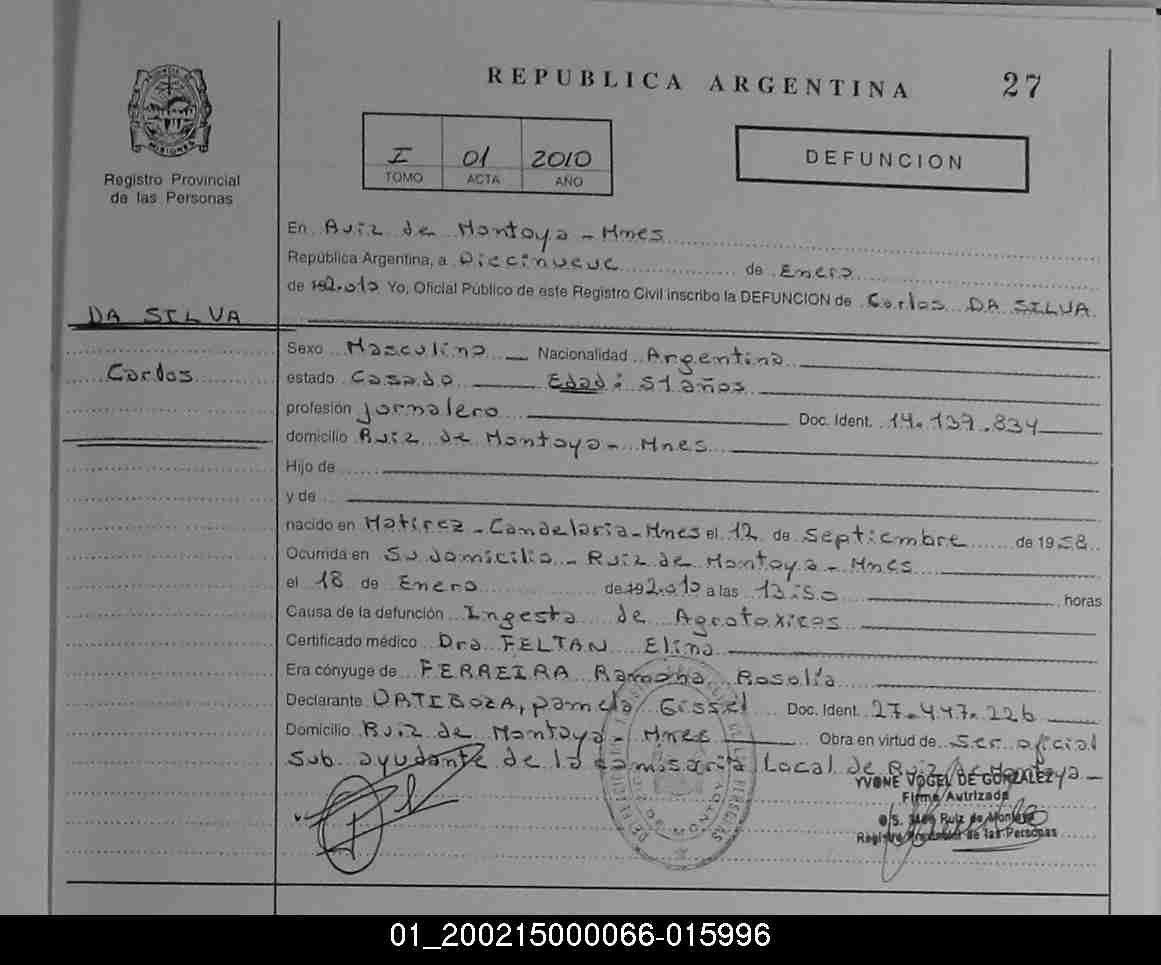 REPUBLICA ARGENTINA 27
MISIONES
Registro Provincial
de las Personas
I 01 2010
TOMO ACTA AÑO
DEFUNCION
En Ruiz de Montoya - Mnes
República Argentina, a Diecinueve de Enero
de 2.010 Yo, Oficial Público de este Registro Civil inscribo la DEFUNCION de Carlos DA SILVA
DA SILVA
Carlos
Sexo Masculino Nacionalidad Argentina
estado Casado Edad: 51 años
profesión Jornalero Doc. Ident. 14.139.834
domicilio Ruiz de Montoya - Mnes
Hijo de
y de
nacido en Matirez - Candelaria - Mnes el 12 de Septiembre de 1958
Ocurrida en Su domicilio - Ruiz de Montoya - Mnes
el 18 de Enero de 192.010 a las 13:50 horas
Causa de la defunción Ingesta de Agrotoxicos
Certificado médico Dra FELTAN Elina
Era cónyuge de FERREIRA Ramona Rosalía
Declarante ORTIGOZA, pamela Gissel Doc. Ident. 27.447.226
Domicilio Ruiz de Montoya - Mnes Obra en virtud de Ser oficial
Sub ayudante de la Comisaría Local de Ruiz de Montoya
YVONE VOGEL DE GONZALEZ
Firma Autrizada
Ruiz de Montoya
Registro Provincial de las Personas
01_200215000066-015996